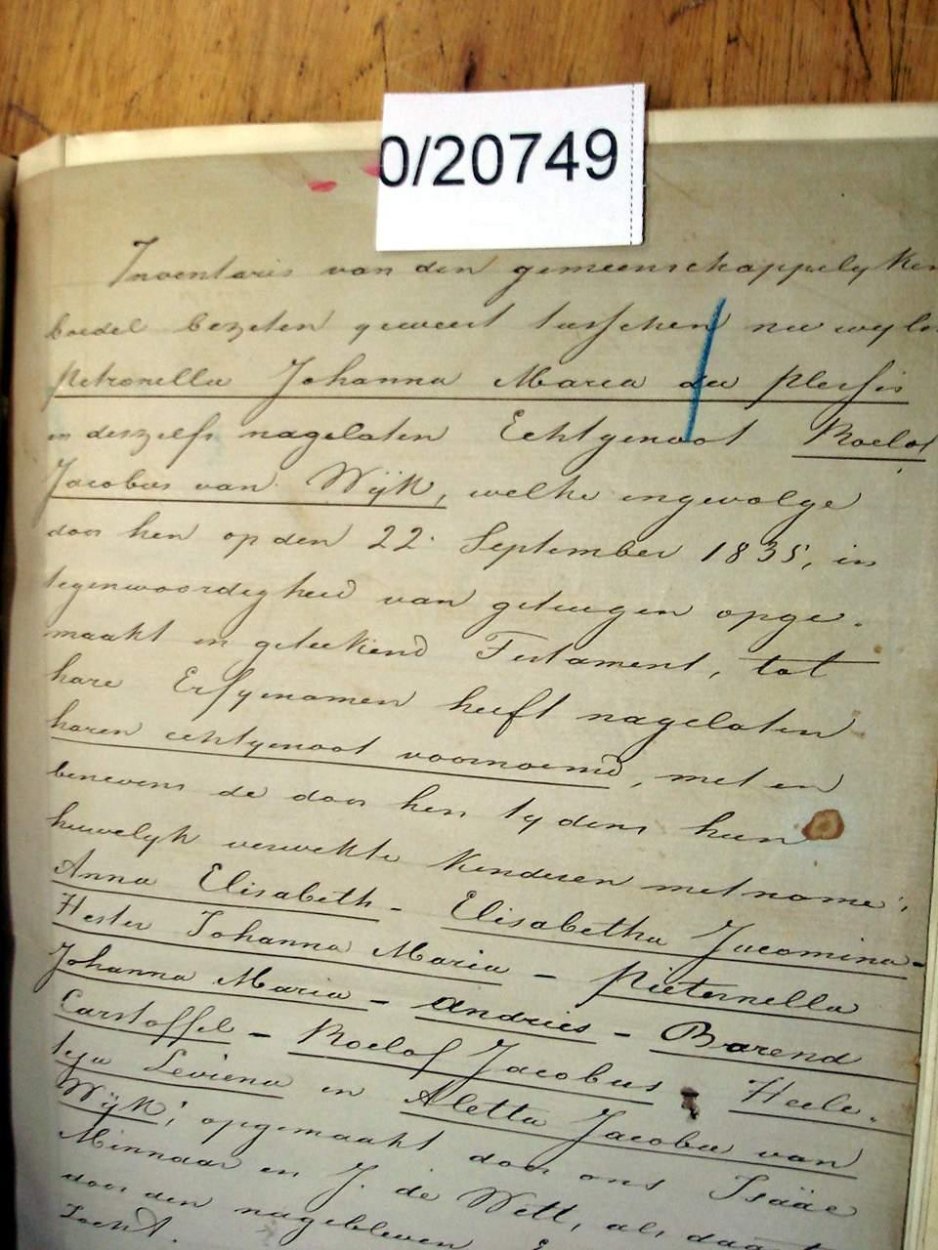 0/20749
Inventaris van den gemeenschappelyken
boedel bezeten geweest tusschen nu wyle
Petronella Johanna Maria du Plessis
en deszelfs nagelaten Echtgenoot Roelof
Jacobus van Wÿk, welke ingevolge
door hen op den 22 September 1835, in
tegenwoordigheid van getuigen opge-
maakt en geteekend Testament, tot
hare Erfgenamen heeft nagelaten
haren echtgenoot voornoemd, met en
benevens de door hen tydens hun
huwelyk verwekte Kinderen met name:
Anna Elisabeth - Elisabetha Jacomina -
Hester Johanna Maria - Pieternella
Johanna Maria - Andries - Barend
Carstoffel - Roelof Jacobus Heele-
tja Leviena en Aletta Jacoba van
Wÿk; opgemaakt door ons Isäac
Minnaar en J. de Wett, als daartoe
door den nagebleven
zocht.